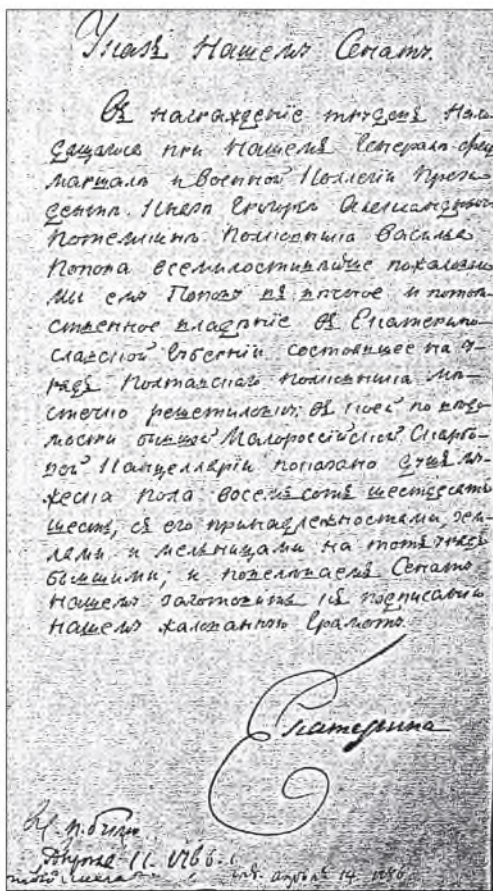 Указъ Нашемъ Сенатъ.
Въ награжденiе трудовъ нахо-
дящагося при Нашемъ Генералъ-фелд
маршалъ и Военной Коллегiи Прези-
дентъ Князъ Григорьъ Александрович
Потемкинъ Полковника Василья
Попова всемилостивѣйше пожаловали
мы емъ Попову въ вѣчное и потом-
ственное владѣнiе въ Екатерино-
славской Губернiи состоящее на у-
рядѣ Полтавскаго полковника мѣ-
стечко решетиловку; въ коей по вѣдо-
мости бывшей Малороссiйской Скарбо-
вой Канцелларiи показано душъ му-
жеска пола восемь сотъ шестдесятъ
шесть, съ его принадлежностями, зем-
лями и мельницами на тотъ часъ
бывшими; и повелѣваемъ Сенату
нашемъ заготовить къ подписанiю
нашемъ жалованною грамотъ.
Екатерина
апрѣля 14 1786